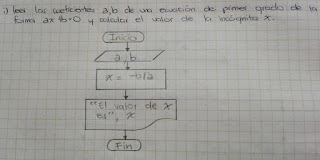 i) leer los coeficientes a,b de una ecuación de primer grado de la
forma ax+b=0 y calcular el valor de la incógnita x.
Inicio
a, b
x = -b/a
"El valor de x
es", x
Fin